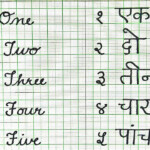 One १ एक
Two २ दो
Three ३ तीन
Four ४ चार
Five ५ पांच